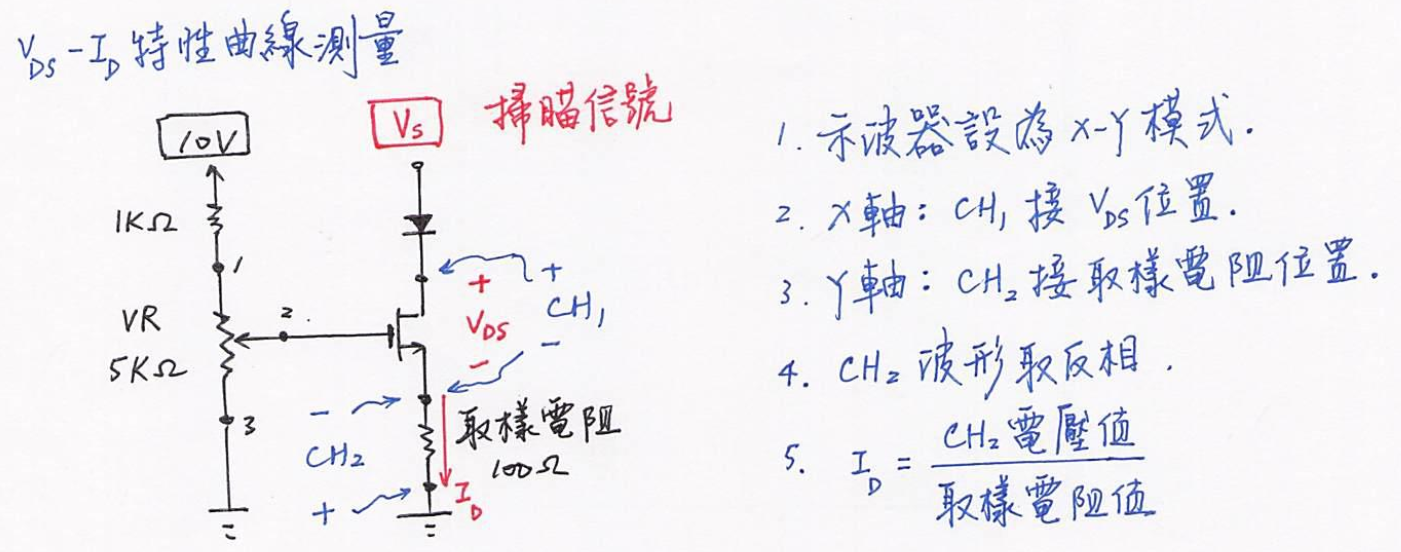 V_DS - I_D 特性曲線測量
10V
V_S
掃瞄信號
1KΩ
1
VR
5KΩ
2
3
+
V_DS
-
+
CH₁
-
-
CH₂
+
取樣電阻
100Ω
I_D
1. 示波器設為 X-Y 模式.
2. X軸: CH₁ 接 V_DS 位置.
3. Y軸: CH₂ 接取樣電阻位置.
4. CH₂ 波形取反相.
5. I_D = CH₂ 電壓值
取樣電阻值